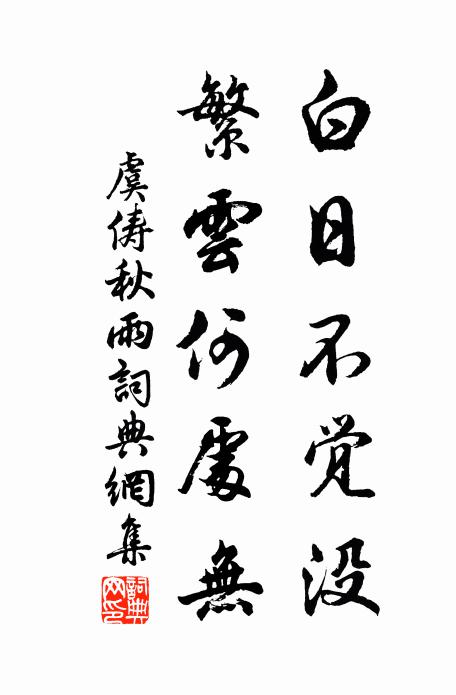 白日不觉没
繁雲何處無
虞儔秋雨詞典網集
詞典網印